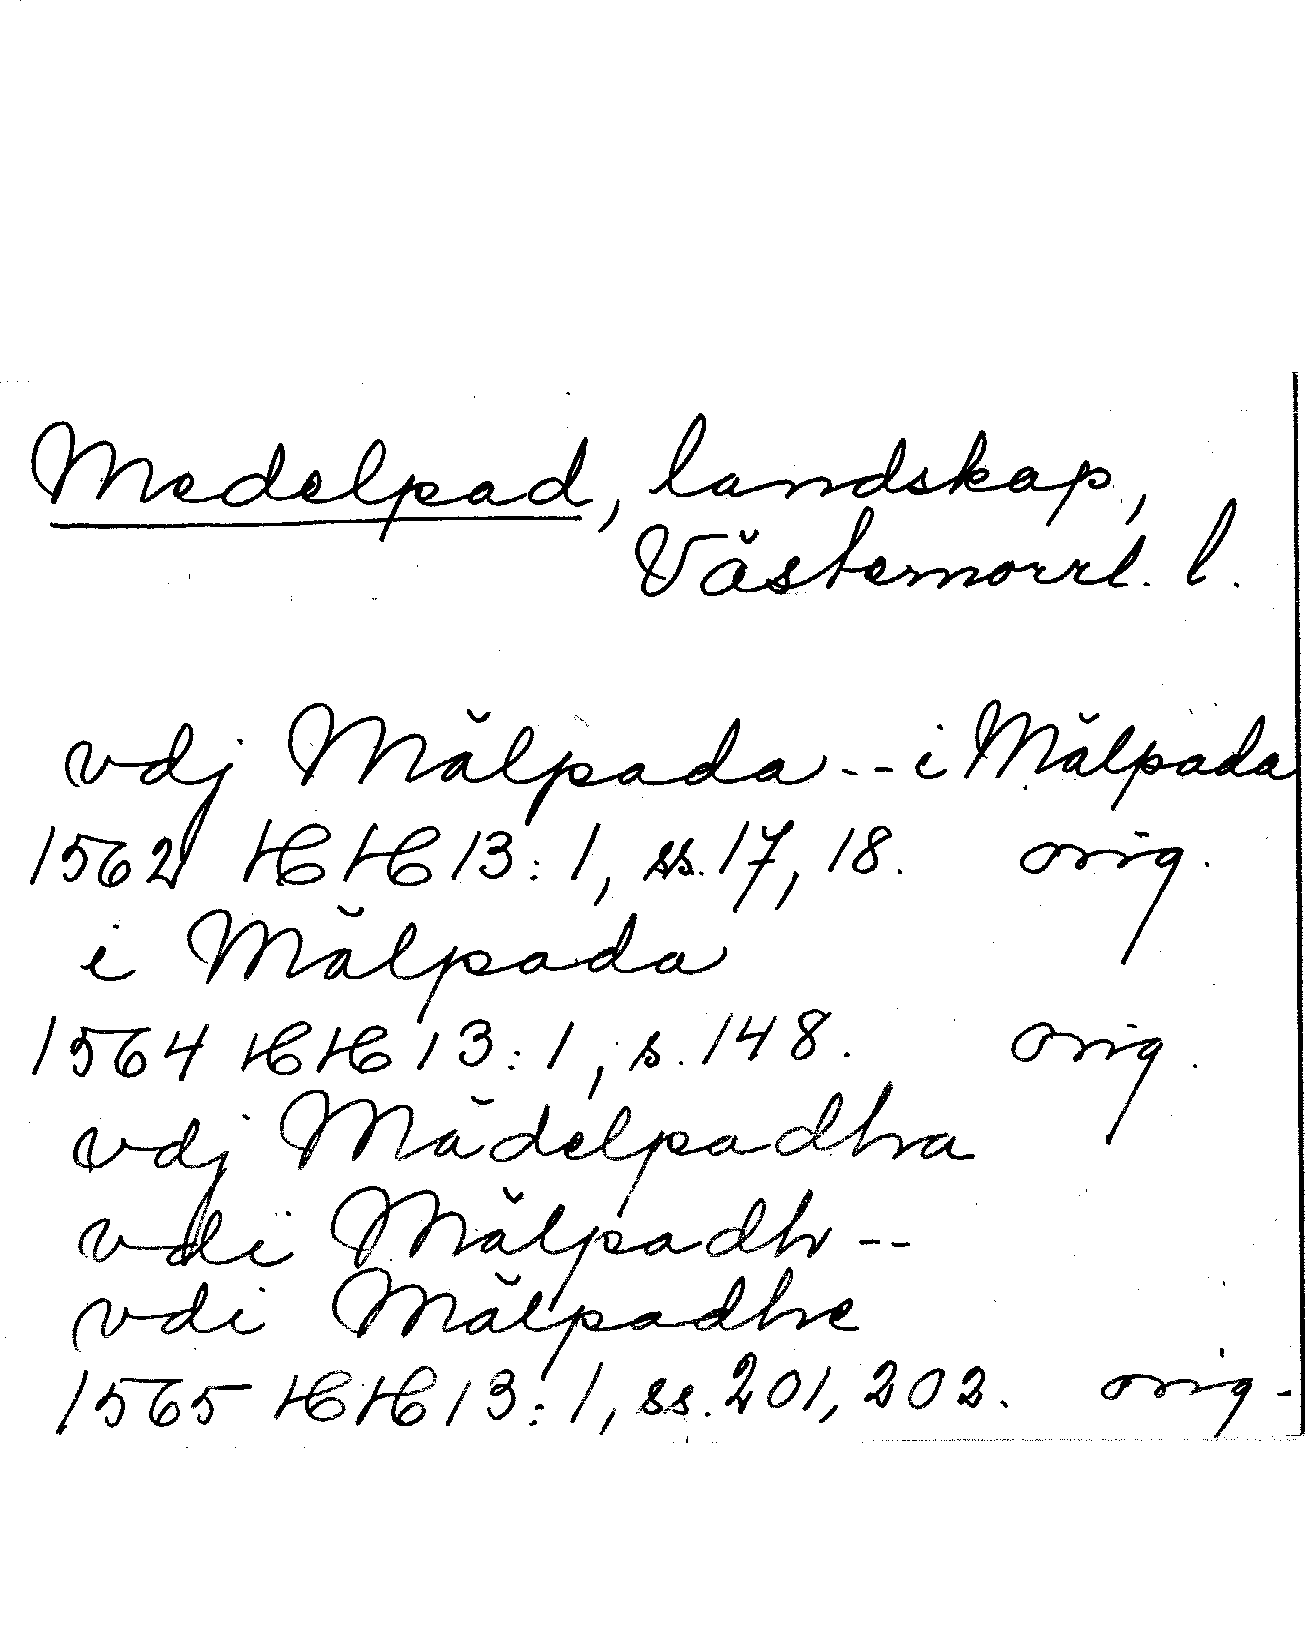 Medelpad, landskap,
Västernorrl. l.
vdj Mälpada -- i Mälpada
1562 HH 13:1, ss. 17, 18. orig.
i Mälpada
1564 HH 13:1, s. 148. orig.
vdj Mädelpadha
vdi Mälpadh --
vdi Mälpadhe
1565 HH 13:1, ss. 201, 202. orig.